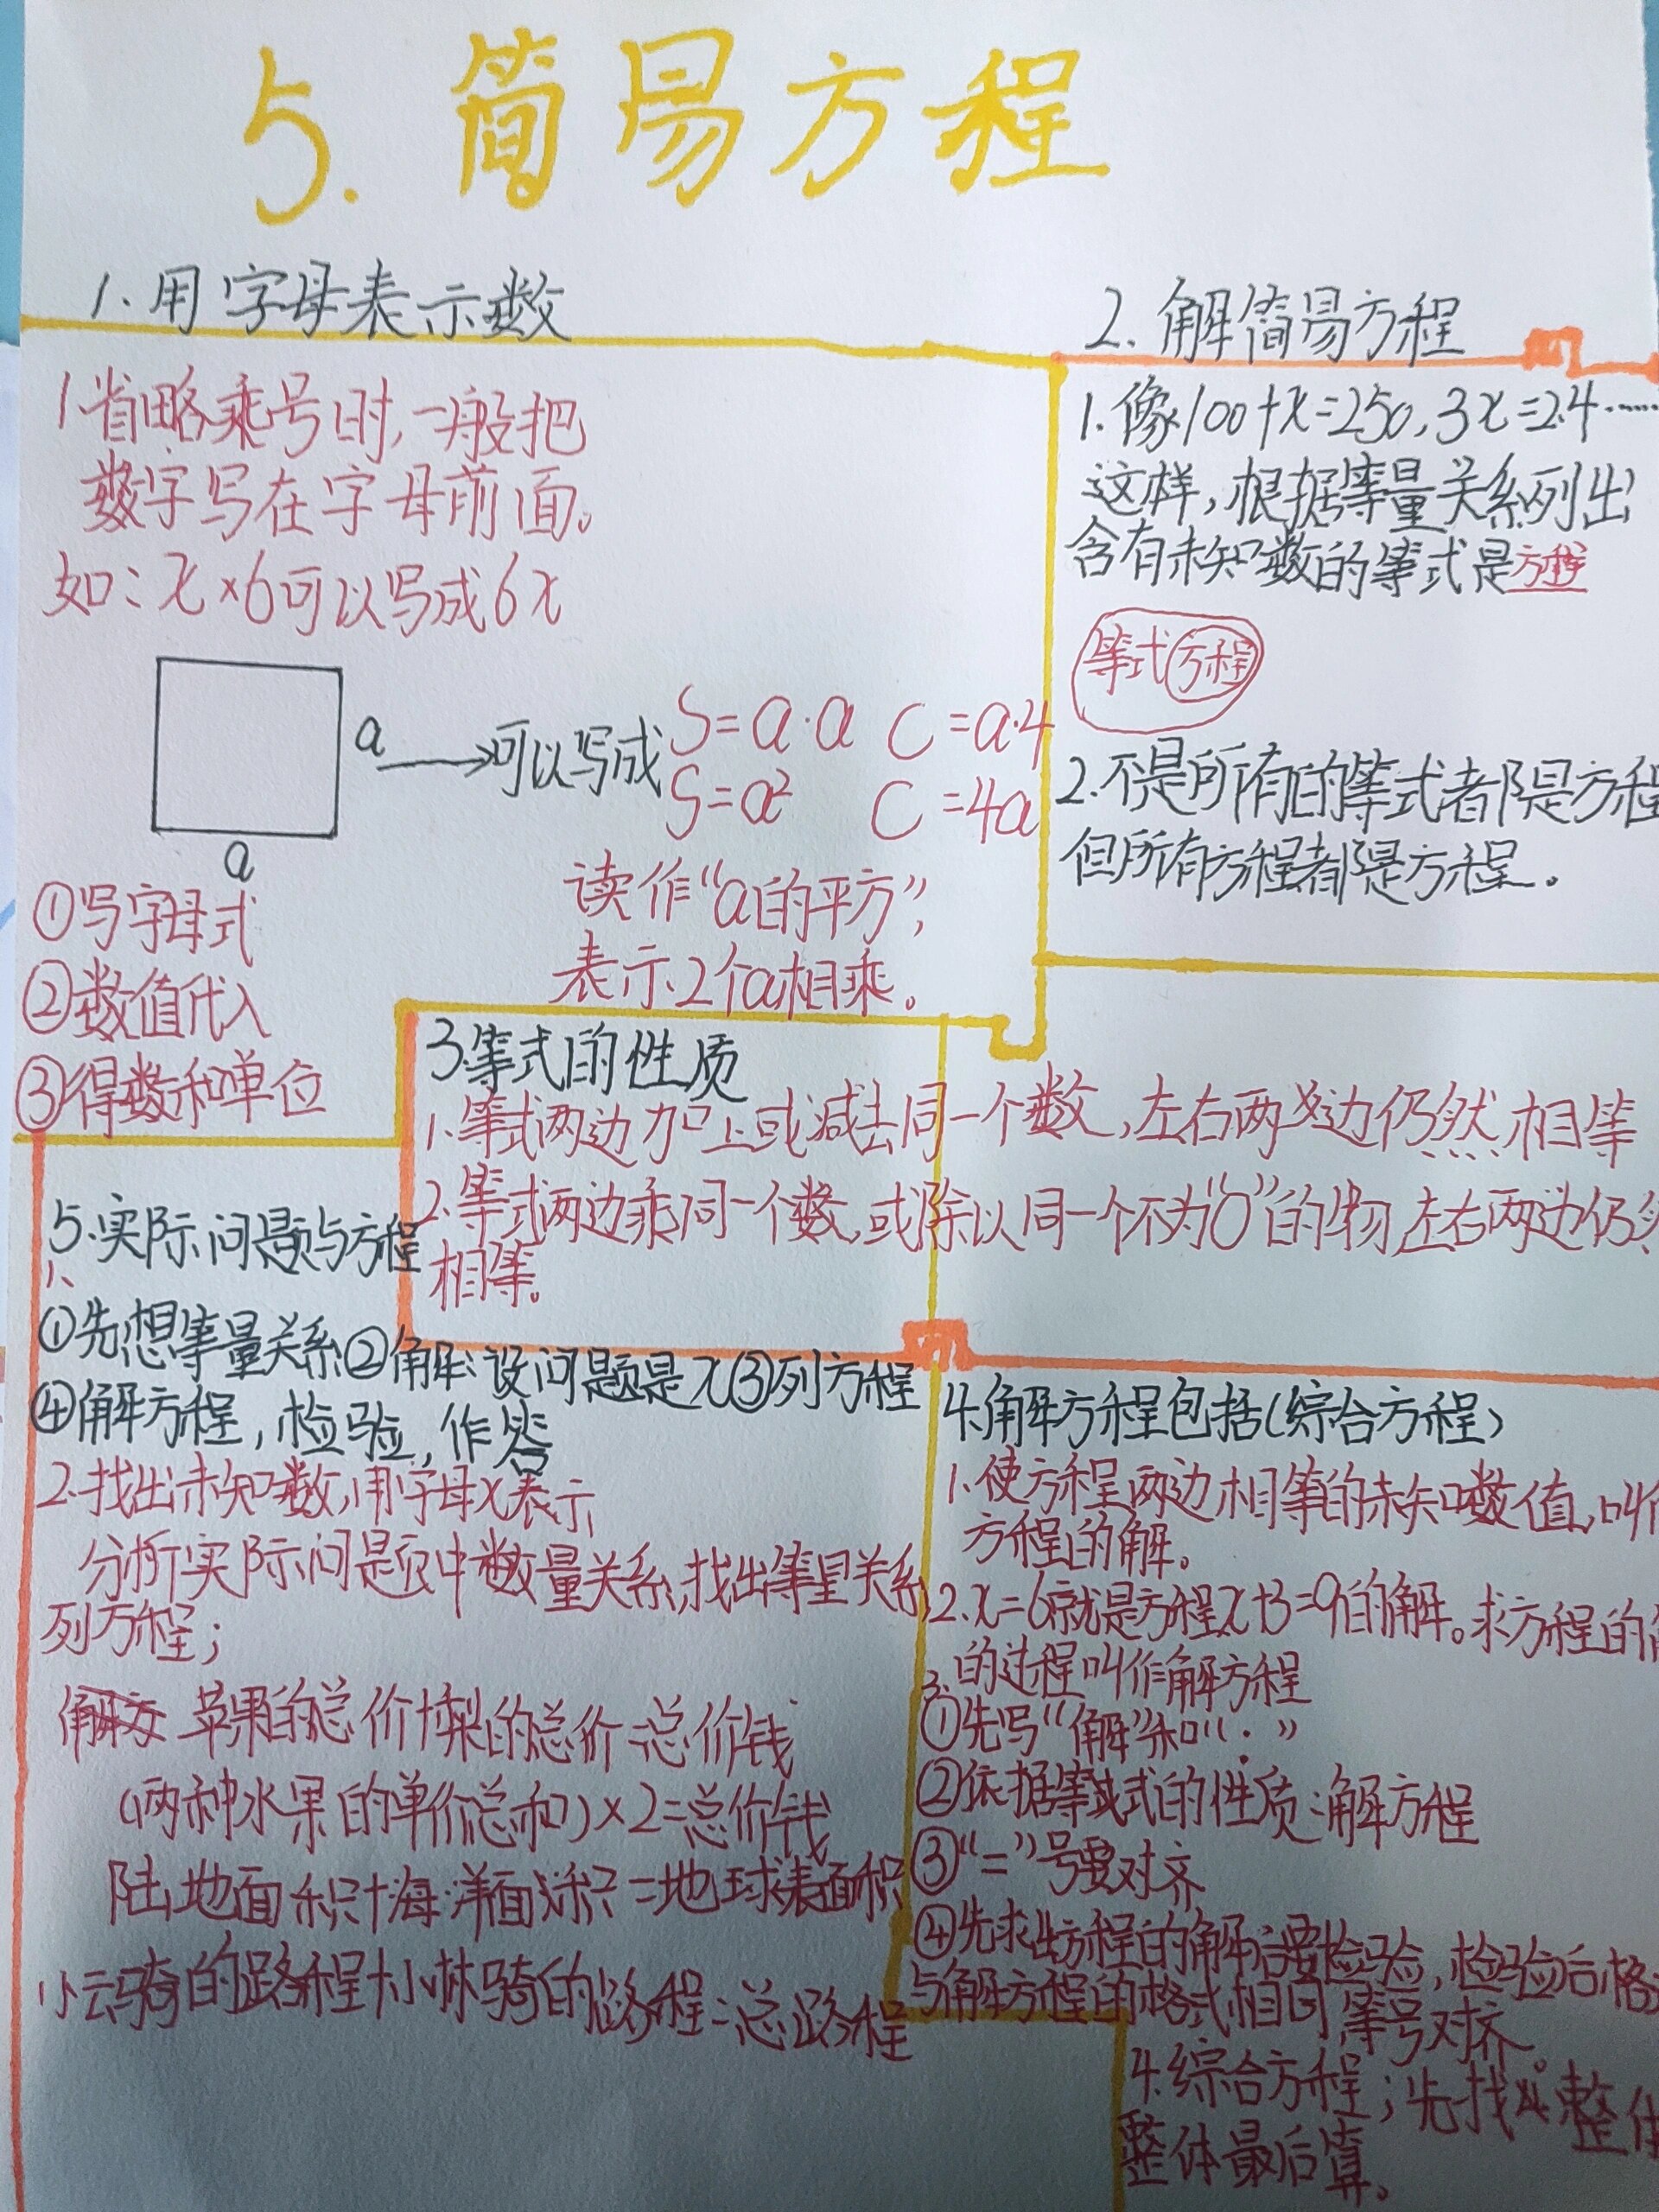 5.简易方程
1.用字母表示数
1.省略乘号时,一般把
数字写在字母前面。
如:x×6可以写成6x
a
可以写成
S=a·a C=a·4
S=a² C=4a
a
读作“a的平方”,
表示2个a相乘。
①写字母式
②数值代入
③得数和单位
2.解简易方程
1.像100+x=250,3x=2.4……
这样,根据等量关系列出
含有未知数的等式是方程
等式 方程
2.不是所有的等式都是方程
但所有方程都是方程。
3.等式的性质
1.等式两边加上或减去同一个数,左右两边仍然相等
2.等式两边乘同一个数,或除以同一个不为“0”的物,左右两边仍
相等。
4.解方程包括(综合方程)
1.使方程两边相等的未知数值,叫
方程的解。
2.x=6就是方程x+3=9的解。求方程的
的过程叫作解方程
3.
①先写“解”和“:”
②依据等式的性质解方程
③“=”号要对齐
④先求出方程的解后要检验,检验后格
与解方程的格式相同 等号对齐。
4.综合方程;先找 整
整体最后算。
5.实际问题与方程
1.
①先想等量关系②解:设问题是x③列方程
④解方程,检验,作答
2.找出未知数,用字母x表示
分析实际问题中数量关系,找出等量关系
列方程;
苹果的总价+梨的总价=总价钱
(两种水果的单价总和)×2=总价钱
陆地面积+海洋面积=地球表面积
小云骑的路程+小林骑的路程=总路程